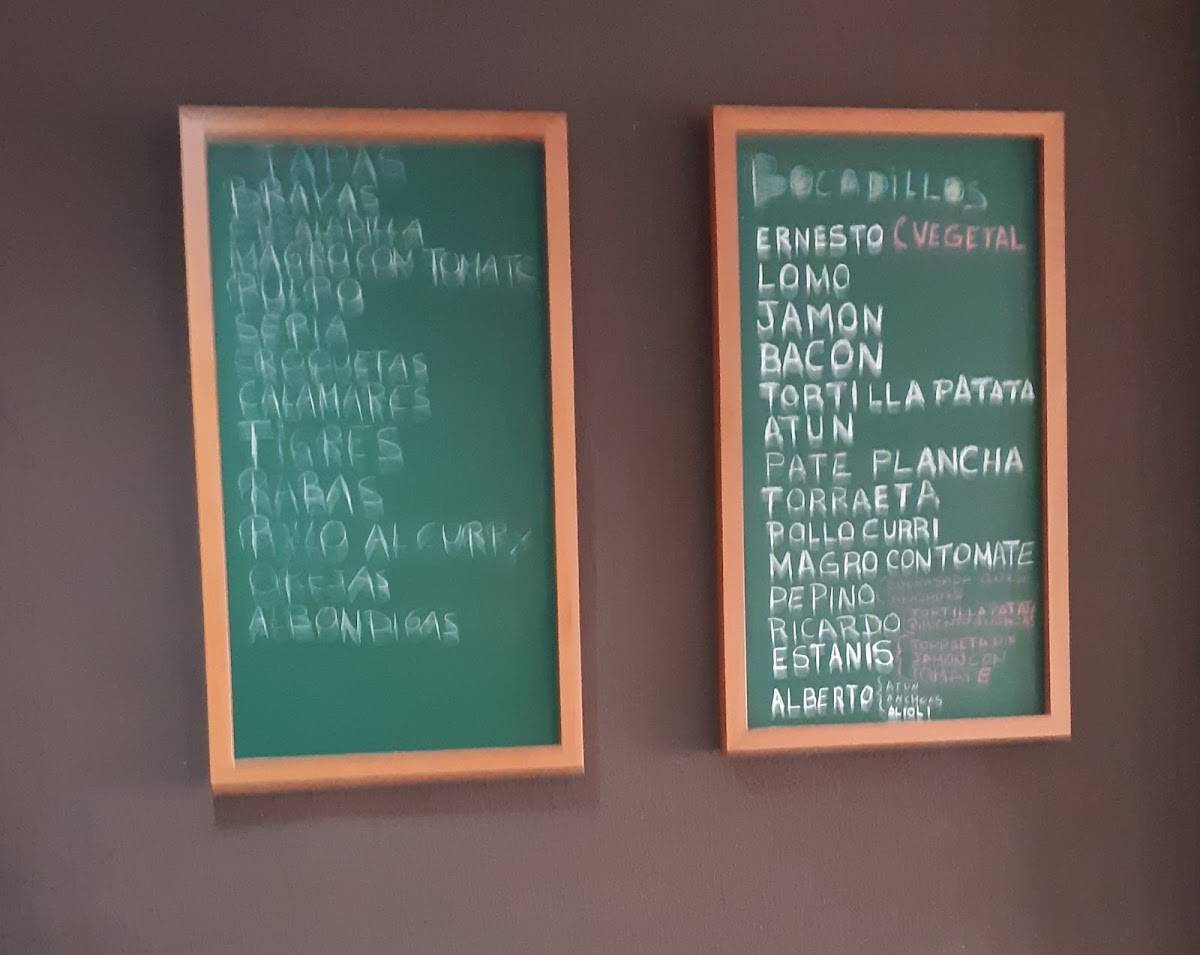 TAPAS
BRAVAS
ENSALADILLA
MAGRO CON TOMATE
PULPO
SEPIA
CROQUETAS
CALAMARES
TIGRES
RABAS
POLLO AL CURRI
OREJAS
ALBONDIGAS
BOCADILLOS
ERNESTO (VEGETAL
LOMO
JAMON
BACON
TORTILLA PATATA
ATUN
PATE PLANCHA
TORRAETA
POLLO CURRI
MAGRO CON TOMATE
PEPINO
RICARDO TORTILLA PATATA
ESTANIS { TORRAETA
JAMON CON
TOMATE
ALBERTO { ATUN
ANCHOAS
ALIOLI